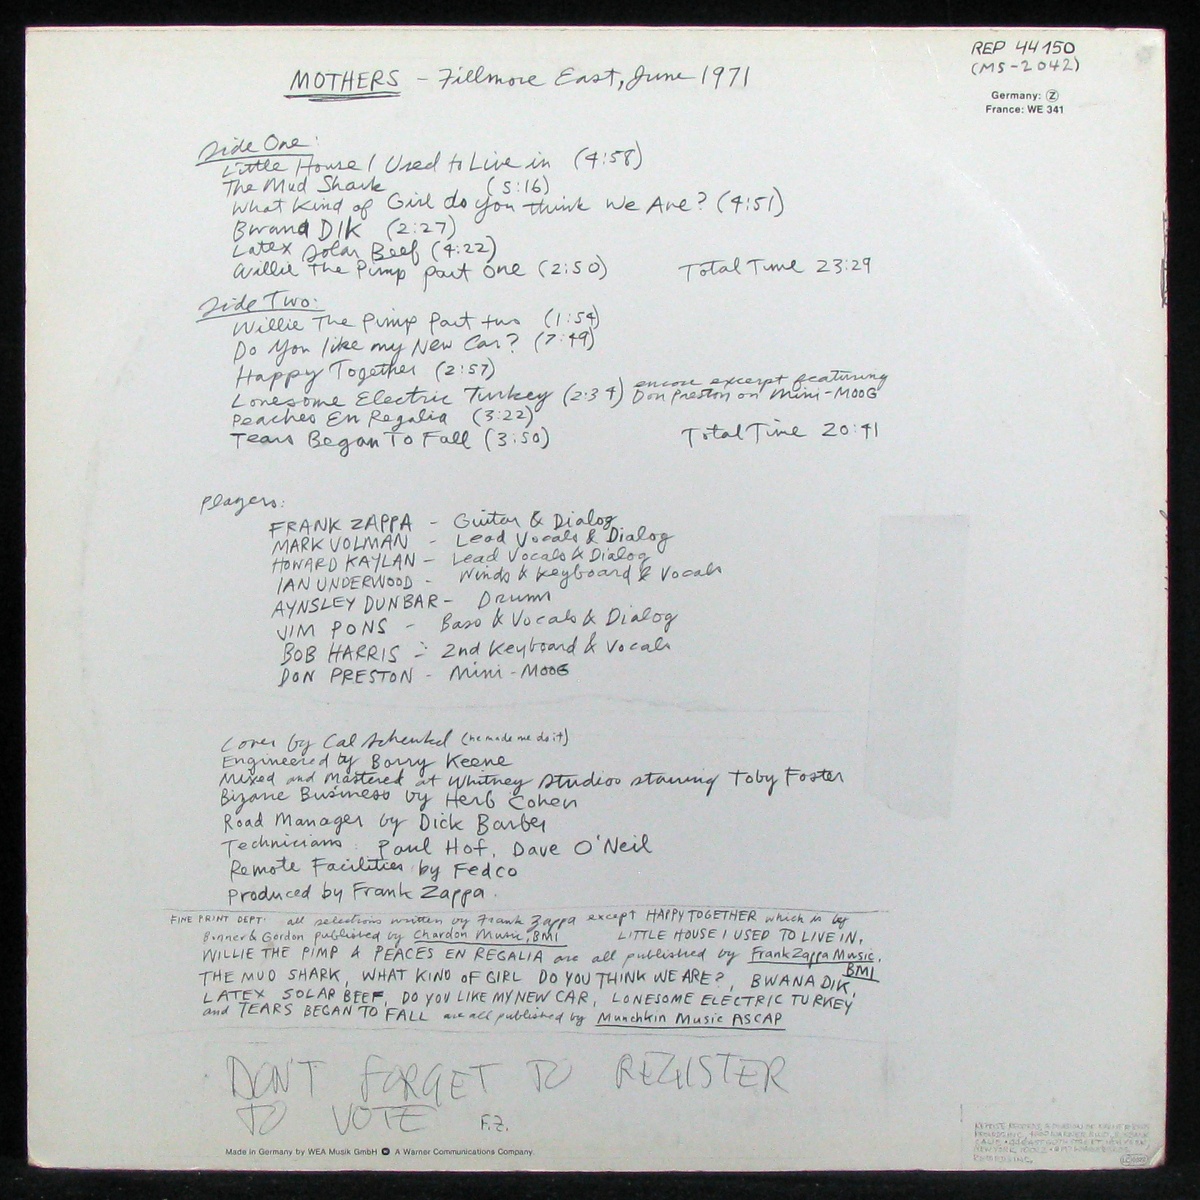 REP 44 150
(MS-2042)
Germany: Z
France: WE 341
MOTHERS - Fillmore East, June 1971
Side One:
Little House I Used to Live in (4:58)
The Mud Shark (5:16)
What Kind of Girl do you think We Are? (4:51)
Bwana DIK (2:27)
Latex Solar Beef (4:22)
Willie The Pimp part One (2:50) Total Time 23:29
Side Two:
Willie The Pimp Part two (1:54)
Do You like my New Car? (7:49)
Happy Together (2:57)
Lonesome Electric Turkey (2:34) encore excerpt featuring Don Preston on Mini-MOOG
Peaches En Regalia (3:22)
Tears Began To Fall (3:50) Total Time 20:41
Players:
FRANK ZAPPA - Guitar & Dialog
MARK VOLMAN - Lead Vocals & Dialog
HOWARD KAYLAN - Lead Vocals & Dialog
IAN UNDERWOOD - Winds & Keyboard & Vocals
AYNSLEY DUNBAR - Drums
JIM PONS - Bass & Vocals & Dialog
BOB HARRIS - 2nd Keyboard & Vocals
DON PRESTON - Mini-MOOG
Cover by Cal Schenkel (he made me do it)
Engineered by Barry Keene
Mixed and Mastered at Whitney Studios starring Toby Foster
Bizarre Business by Herb Cohen
Road Manager by Dick Barber
Technicians: Paul Hof, Dave O'Neil
Remote Facilities by Fedco
Produced by Frank Zappa.
FINE PRINT DEPT: all selections written by Frank Zappa except HAPPY TOGETHER which is by
Bonner & Gordon published by Chardon Music, BMI LITTLE HOUSE I USED TO LIVE IN,
WILLIE THE PIMP & PEACES EN REGALIA are all published by Frank Zappa Music, BMI
THE MUD SHARK, WHAT KIND OF GIRL DO YOU THINK WE ARE?, BWANA DIK,
LATEX SOLAR BEEF, DO YOU LIKE MY NEW CAR, LONESOME ELECTRIC TURKEY
and TEARS BEGAN TO FALL are all published by Munchkin Music ASCAP
DON'T FORGET TO REGISTER
TO VOTE F.Z.
Made in Germany by WEA Musik GmbH A Warner Communications Company